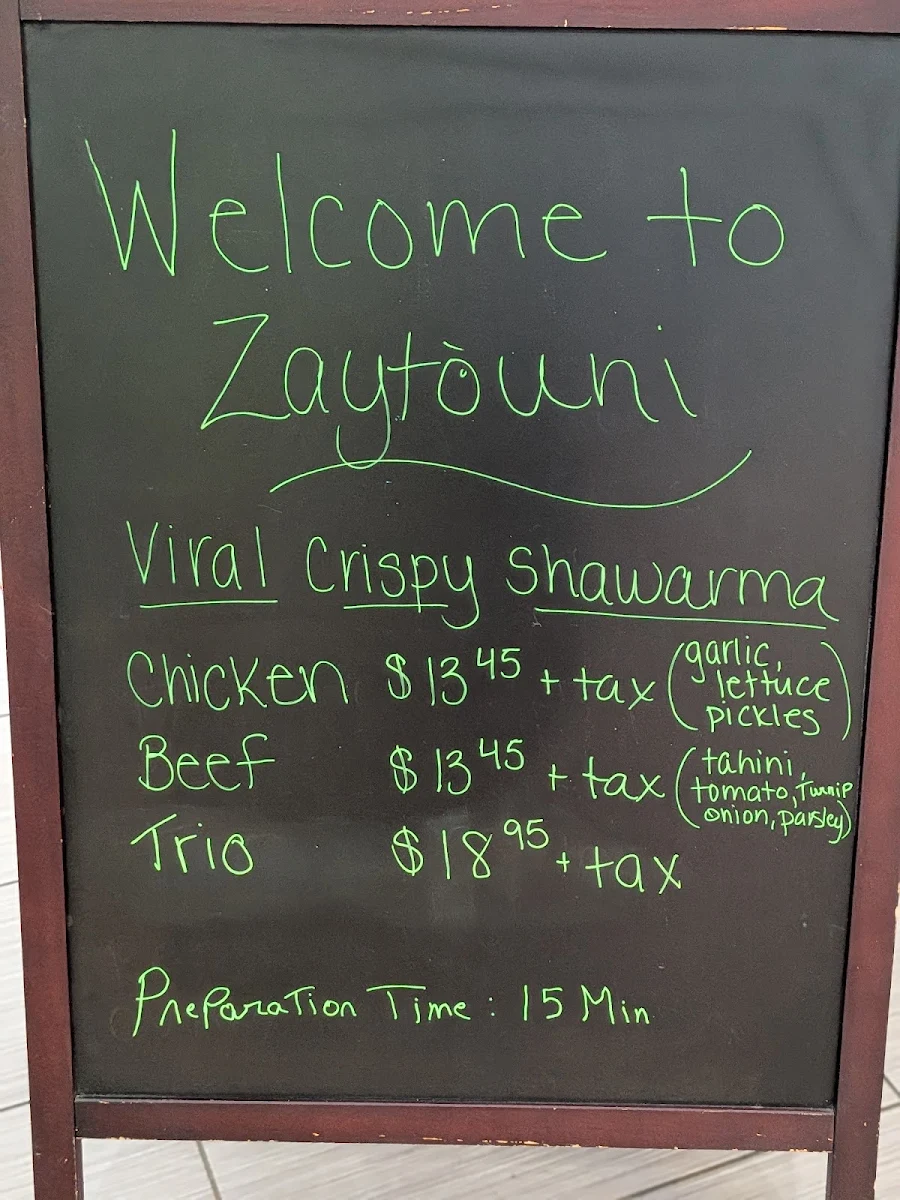 Welcome to
Zaytouni
Viral Crispy Shawarma
Chicken $13.45 + tax (garlic, lettuce pickles)
Beef $13.45 + tax (tahini, tomato, Turnip onion, parsley)
Trio $18.95 + tax
Preparation Time : 15 Min